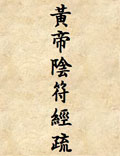 黃帝陰符經疏